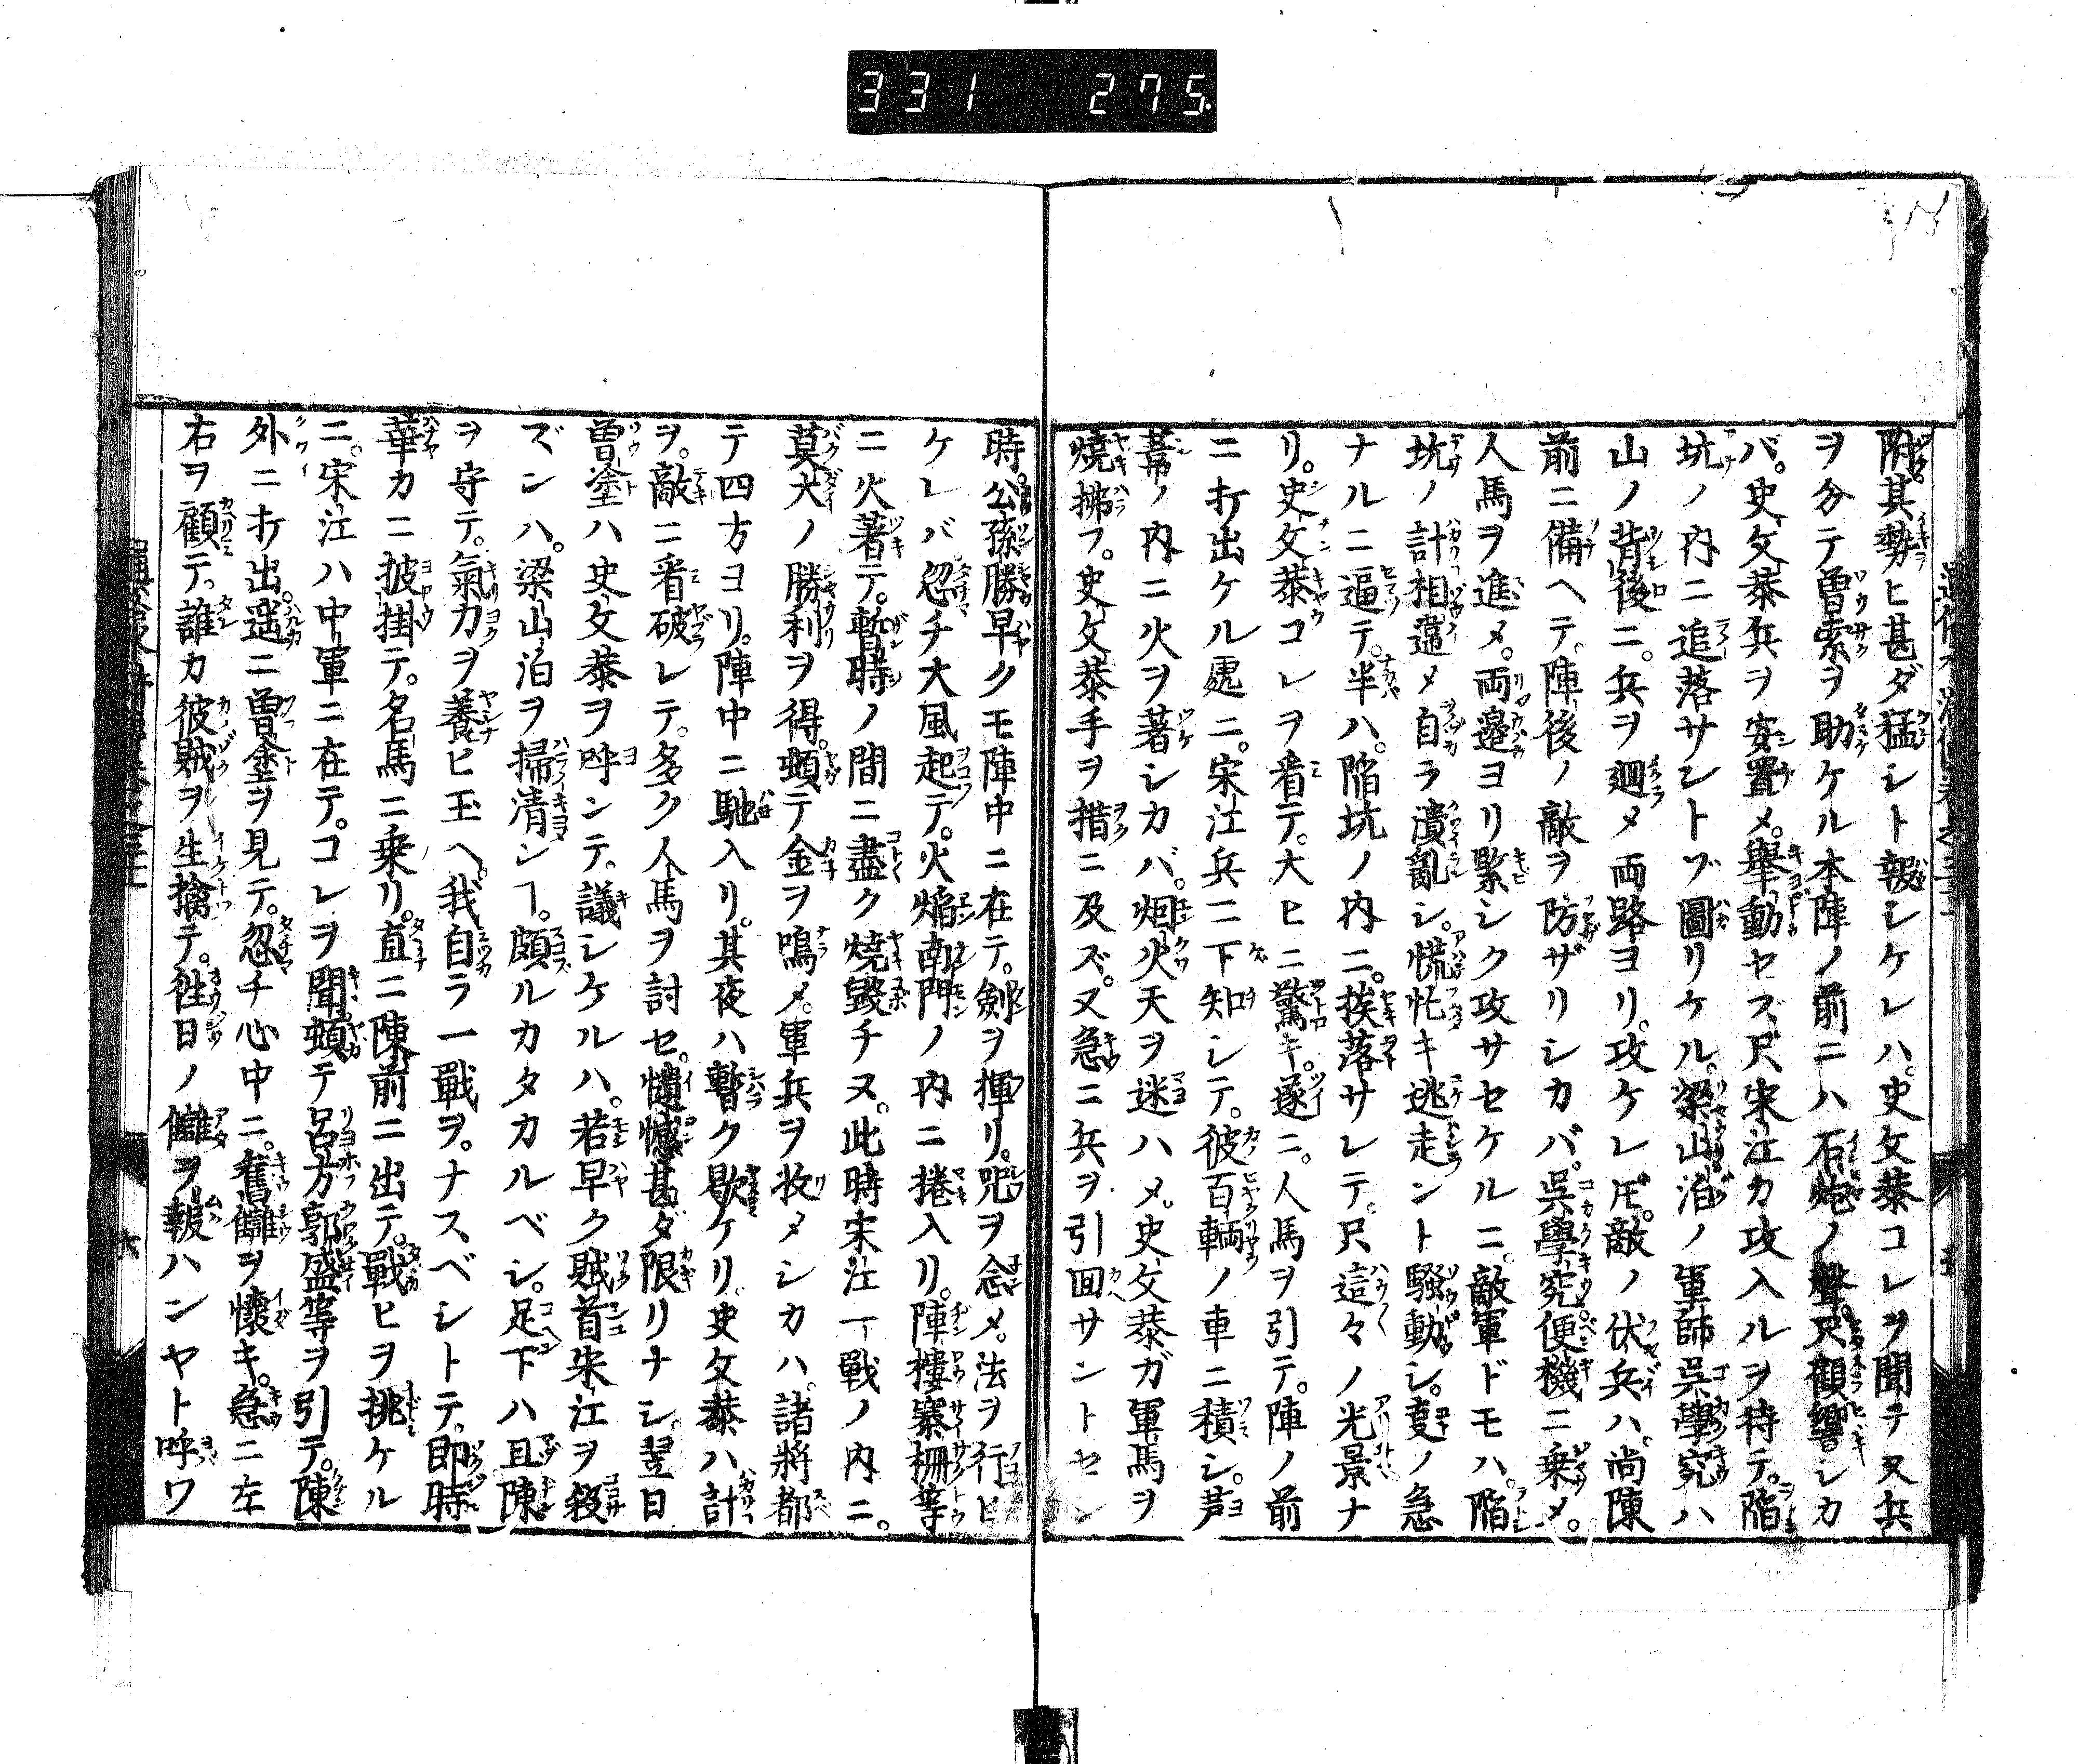 331 275.
附。其勢ヒ甚ダ猛シト報シケレハ。史文恭コレヲ聞テ又兵
ヲ分テ曽索ヲ助ケル本陣ノ前ニハ石炮ノ聲。尺顧響シカ
バ。史文恭兵ヲ安置メ。舉動セズ尺宋江カ攻入ルヲ待テ。陷
坑ノ内ニ追落サントブ圖リケル。梁山泊ノ軍師呉學究ハ
山ノ背後ニ。兵ヲ廻メ両路ヨリ。攻ケレ𪜈。敵ノ伏兵ハ。尚陳
前ニ備ヘテ。陣後ノ敵ヲ防ザリシカバ。呉學究便機ニ乗メ。
人馬ヲ進メ。両邉ヨリ緊シク攻サセケルニ。敵軍ドモハ。陷
坑ノ計相違メ自ラ潰亂シ。慌忙キ逃走ント騒動シ。𨕙ノ急
ナルニ逼テ。半ハ。陷坑ノ内ニ。挨落サレテ。尺這々ノ光景ナ
リ。史文恭コレヲ看テ。大ヒニ驚キ。遂ニ。人馬ヲ引テ。陣ノ前
ニ打出ケル處ニ。宋江兵ニ下知シテ。彼百輌ノ車ニ積シ。芦
葦ノ内ニ火ヲ著シカバ。烟火天ヲ迷ハメ。史文恭ガ軍馬ヲ
燒拂フ。史文恭手ヲ措ニ及ズ。又急ニ兵ヲ引回サントセシ
時。公孫勝早クモ陣中ニ在テ。剱ヲ揮リ。咒ヲ念メ。法ヲ行ヒ
ケレバ忽チ大風起テ。火焔南門ノ内ニ捲入リ。陣樓寨柵等
ニ火著テ。暫時ノ間ニ盡ク燒毀チヌ。此時宋江一戰ノ内ニ。
莫大ノ勝利ヲ得。頓テ金ヲ鳴メ。軍兵ヲ收メシカハ。諸將都
テ四方ヨリ。陣中ニ馳入リ。其夜ハ暫ク歇ケリ。史文恭ハ計
ヲ。敵ニ看破レテ。多ク人馬ヲ討セ。憤憾甚ダ限リナシ。翌日
曽塗ハ史文恭ヲ呼ンテ。議シケルハ。若早ク賊首宋江ヲ殺
ズンハ。梁山泊ヲ掃清ンヿ。頗ルカタカルベシ。足下ハ且陳
ヲ守テ。氣力ヲ養ヒ玉ヘ。我自ラ一戰ヲ。ナスベシトテ。即時
華カニ披掛テ。名馬ニ乗リ。直ニ陳前ニ出テ。戰ヒヲ挑ケル
ニ。宋江ハ中軍ニ在テ。コレヲ聞。頓テ呂方郭盛等ヲ引テ。陳
外ニ打出。遥ニ曽塗ヲ見テ。忽チ心中ニ。舊讎ヲ懷キ。急ニ左
右ヲ顧テ。誰カ彼賊ヲ生擒テ。徃日ノ讎ヲ。報ハンヤト呼ワ
六